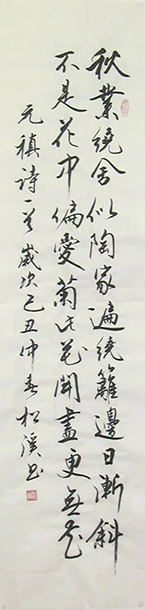 秋業繞舍似陶家遍繞籬邊日漸斜
不是花中偏愛菊此花開盡更無花
元稹詩一首歲次己丑仲春松溪書